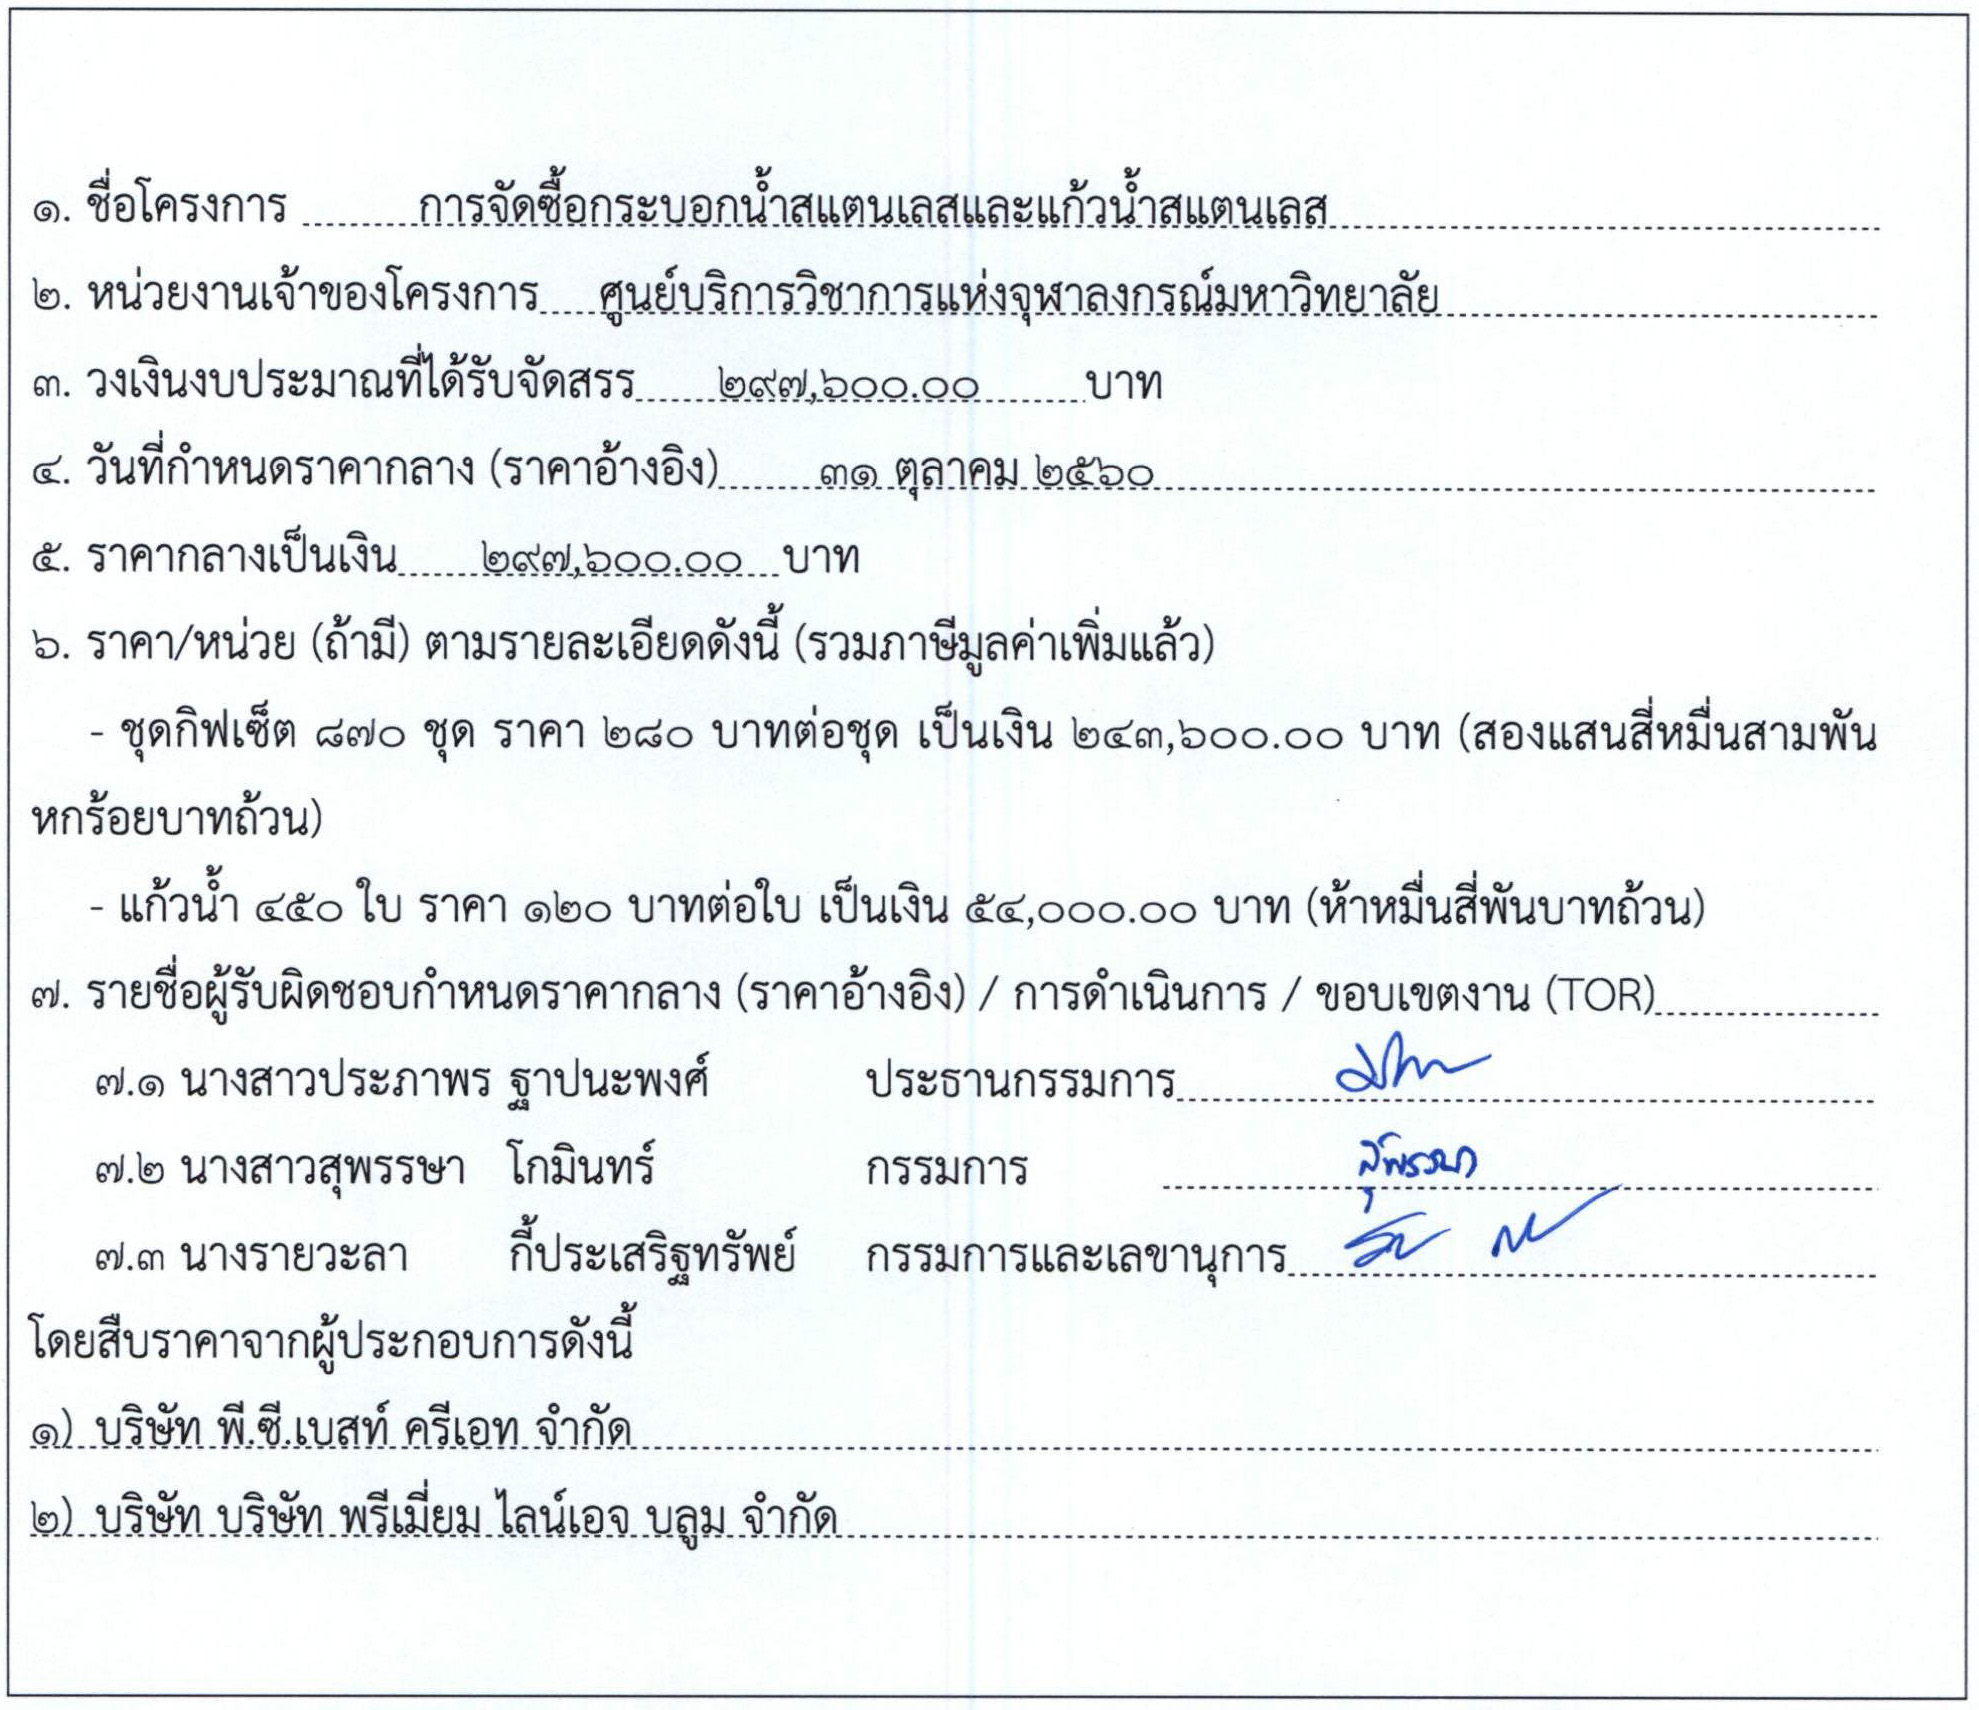 ๑. ชื่อโครงการ การจัดซื้อกระบอกน้ำสแตนเลสและแก้วน้ำสแตนเลส
๒. หน่วยงานเจ้าของโครงการ ศูนย์บริการวิชาการแห่งจุฬาลงกรณ์มหาวิทยาลัย
๓. วงเงินงบประมาณที่ได้รับจัดสรร ๒๙๗,๖๐๐.๐๐ บาท
๔. วันที่กำหนดราคากลาง (ราคาอ้างอิง) ๓๑ ตุลาคม ๒๕๖๐
๕. ราคากลางเป็นเงิน ๒๙๗,๖๐๐.๐๐ บาท
๖. ราคา/หน่วย (ถ้ามี) ตามรายละเอียดดังนี้ (รวมภาษีมูลค่าเพิ่มแล้ว)
- ชุดกิฟเซ็ต ๘๗๐ ชุด ราคา ๒๘๐ บาทต่อชุด เป็นเงิน ๒๔๓,๖๐๐.๐๐ บาท (สองแสนสี่หมื่นสามพัน
หกร้อยบาทถ้วน)
- แก้วน้ำ ๔๕๐ ใบ ราคา ๑๒๐ บาทต่อใบ เป็นเงิน ๕๔,๐๐๐.๐๐ บาท (ห้าหมื่นสี่พันบาทถ้วน)
๗. รายชื่อผู้รับผิดชอบกำหนดราคากลาง (ราคาอ้างอิง) / การดำเนินการ / ขอบเขตงาน (TOR)
๗.๑ นางสาวประภาพร ฐาปนะพงศ์ ประธานกรรมการ
๗.๒ นางสาวสุพรรษา โกมินทร์ กรรมการ สุพรรษา
๗.๓ นางรายวะลา กี้ประเสริฐทรัพย์ กรรมการและเลขานุการ
โดยสืบราคาจากผู้ประกอบการดังนี้
๑) บริษัท พี.ซี.เบสท์ ครีเอท จำกัด
๒) บริษัท บริษัท พรีเมี่ยม ไลน์เอจ บลูม จำกัด